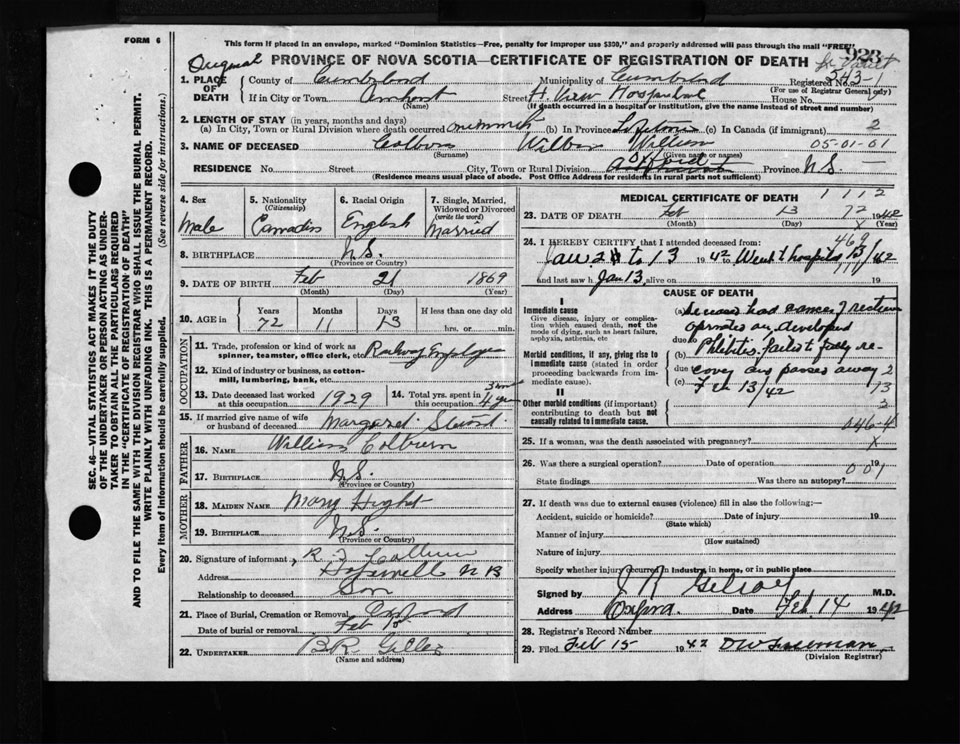 FORM 6
This form if placed in an envelope, marked "Dominion Statistics—Free, penalty for improper use $300," and properly addressed will pass through the mail "FREE"
923
Original PROVINCE OF NOVA SCOTIA—CERTIFICATE OF REGISTRATION OF DEATH
1. PLACE OF DEATH County of Cumberland Municipality of Cumberland Registered No. 343-1
(For use of Registrar General only)
If in City or Town Amherst Street H. View Hospital House No.
(Name) (If death occurred in a hospital or institution, give the name instead of street and number)
2. LENGTH OF STAY (in years, months and days)
(a) In City, Town or Rural Division where death occurred one month (b) In Province Lifetime (c) In Canada (if immigrant) 2
3. NAME OF DECEASED Colburn Wilbur William 05-01-01
(Surname) (Given name or names)
RESIDENCE No. Street City, Town or Rural Division Oxford Province N.S.
(Residence means usual place of abode. Post Office Address for residents in rural parts not sufficient)
4. Sex Male
5. Nationality (Citizenship) Canadian
6. Racial Origin English
7. Single, Married, Widowed or Divorced (write the word) Married
8. BIRTHPLACE N.S.
(Province or Country)
9. DATE OF BIRTH Feb 21 1869
(Month) (Day) (Year)
10. AGE in Years Months Days If less than one day old
72 11 13 hrs. or min.
OCCUPATION
11. Trade, profession or kind of work as spinner, teamster, office clerk, etc. Railway Employee
12. Kind of industry or business, as cotton-mill, lumbering, bank, etc.
13. Date deceased last worked at this occupation 1929
14. Total yrs. spent in this occupation
15. If married give name of wife or husband of deceased Margaret
FATHER
16. NAME William Colburn
17. BIRTHPLACE N.S.
(Province or Country)
MOTHER
18. MAIDEN NAME Mary Hight
19. BIRTHPLACE N.S.
(Province or Country)
20. Signature of informant R. Colburn
Address Hopewell N B
Relationship to deceased Son
21. Place of Burial, Cremation or Removal Oxford
Date of burial or removal Feb 15
22. UNDERTAKER B.R.
(Name and address)
MEDICAL CERTIFICATE OF DEATH 1 1 1 2
23. DATE OF DEATH Feb 13 72 1942
(Month) (Day) (Year)
24. I HEREBY CERTIFY that I attended deceased from: 469
Jan. to 13 1942 Went to hospital 1/13/42
and last saw h alive on Jan 13, 19
CAUSE OF DEATH
I
Immediate cause
Give disease, injury or complication which caused death, not the mode of dying, such as heart failure, asphyxia, asthenia, etc
Morbid conditions, if any, giving rise to immediate cause (stated in order proceeding backwards from immediate cause).
II
Other morbid conditions (if important) contributing to death but not causally related to immediate cause.
(a) deceased had cancer of rectum
operated on, developed
due to
(b) Phlebitis. failed to fully re-
due covery and passed away 2
(c) Feb 13/42 13
3
046-4
25. If a woman, was the death associated with pregnancy? X
26. Was there a surgical operation? Date of operation 19
001
State findings Was there an autopsy?
27. If death was due to external causes (violence) fill in also the following:—
Accident, suicide or homicide? Date of injury 19
(State which)
Manner of injury
(How sustained)
Nature of injury
Specify whether injury occurred in industry, in home, or in public place
Signed by J R Gilroy M.D.
Address Oxford. Date Feb. 14 1942
28. Registrar's Record Number
29. Filed Feb 15 1942
(Division Registrar)
SEC. 46—VITAL STATISTICS ACT MAKES IT THE DUTY
OF THE UNDERTAKER OR PERSON ACTING AS UNDER-
TAKER TO OBTAIN ALL THE PARTICULARS REQUIRED
IN THE "CERTIFICATE OF REGISTRATION OF DEATH"
AND TO FILE THE SAME WITH THE DIVISION REGISTRAR WHO SHALL ISSUE THE BURIAL PERMIT.
WRITE PLAINLY WITH UNFADING INK. THIS IS A PERMANENT RECORD.
Every item of information should be carefully supplied. (See reverse side for instructions.)